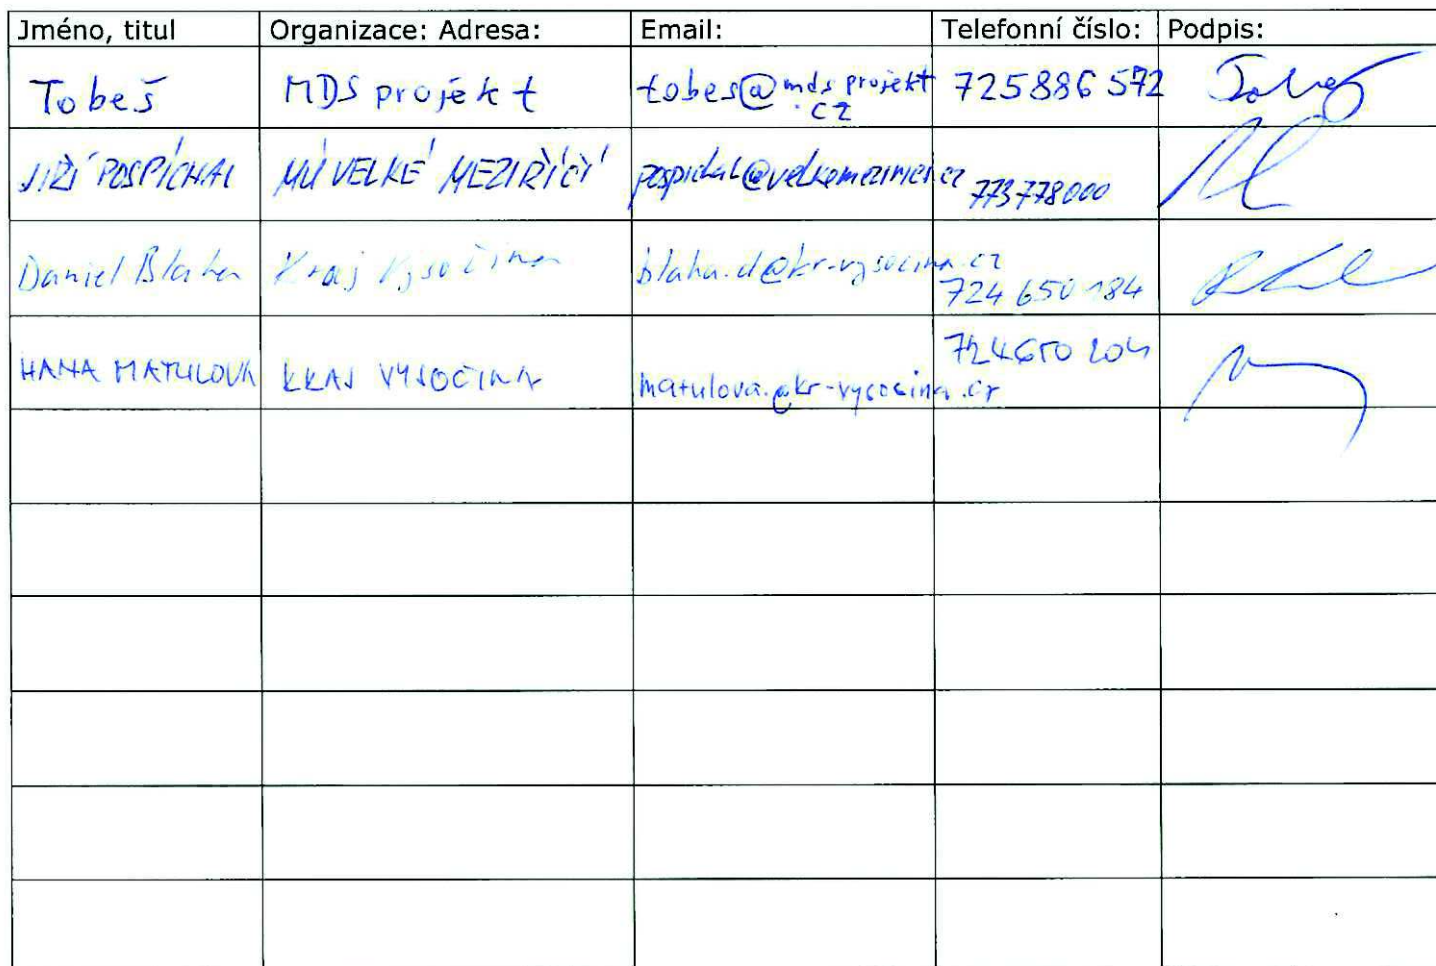 Jméno, titul Organizace: Adresa: Email: Telefonní číslo: Podpis:
Tobeš MDS projekt tobes@mdsprojekt 725886572 Tobeš
.cz
JIŘÍ POSPÍCHAL MÚ VELKÉ MEZIŘÍČÍ pospichal@velkemezirici.cz 773778000
Daniel Blaha Kraj Vysočina blaha.d@kr-vysocina.cz
724 650 184
724650 204
HANA MATULOVÁ KRAJ VYSOČINA matulova.@kr-vysocina.cz